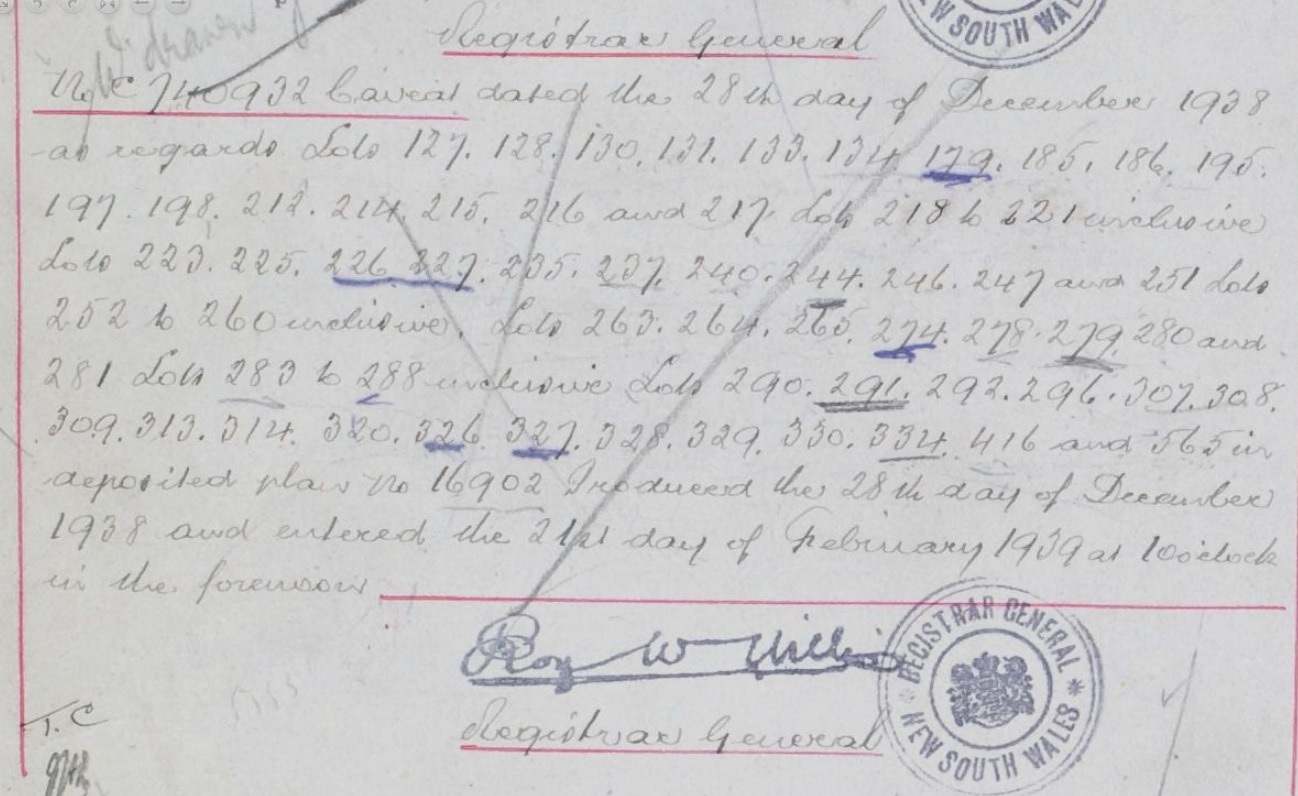 W'drawn
NEW SOUTH WALES
Registrar General
No C 740932 Caveat dated the 28th day of December 1938
as regards Lots 127. 128. 130. 131. 133. 134. 179. 185. 186. 195.
197. 198. 212. 214. 215. 216 and 217. Lots 218 to 221 inclusive
Lots 223. 225. 226. 227. 235. 237. 240. 244. 246. 247 and 251 Lots
252 to 260 inclusive. Lots 263. 264. 265. 274. 278. 279. 280 and
281 Lots 283 to 288 inclusive Lots 290. 291. 292. 296. 307. 308.
309. 313. 314. 320. 326. 327. 328. 329. 330. 334. 416 and 565 in
deposited plan No 16902 Produced the 28th day of December
1938 and entered the 21st day of February 1939 at 10 oclock
in the forenoon
REGISTRAR GENERAL
NEW SOUTH WALES
Registrar General
T. C